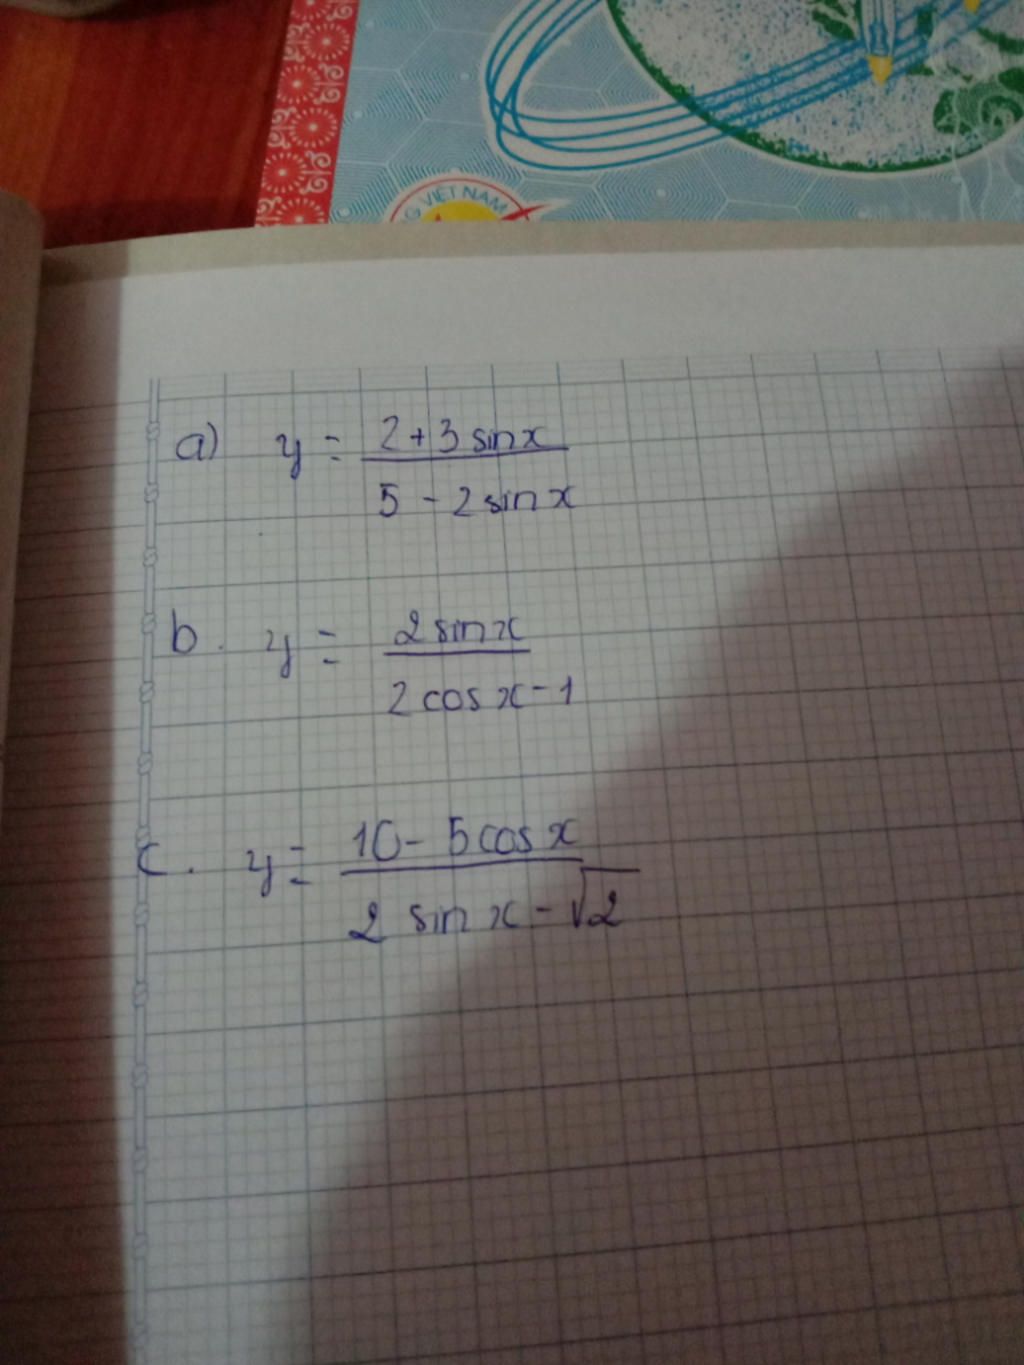 G VIỆT NAM
a) y = (2 + 3 sin x) / (5 - 2 sin x)
b. y = (2 sin x) / (2 cos x - 1)
c. y = (10 - 5 cos x) / (2 sin x - √2)